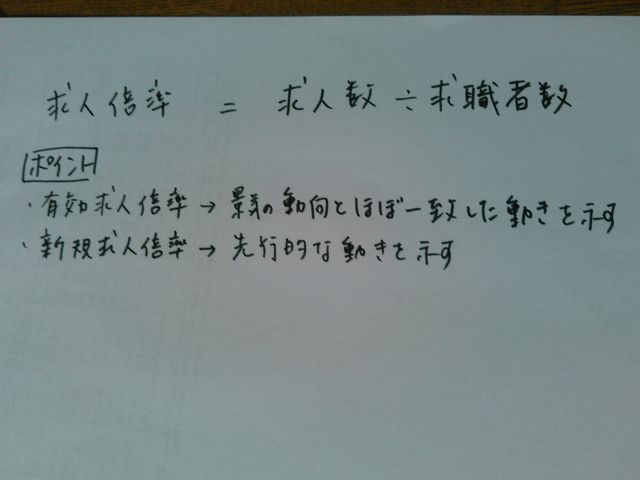 求人倍率 = 求人数 ÷ 求職者数
ポイント
・有効求人倍率 → 景気の動向とほぼ一致した動きを示す
・新規求人倍率 → 先行的な動きを示す